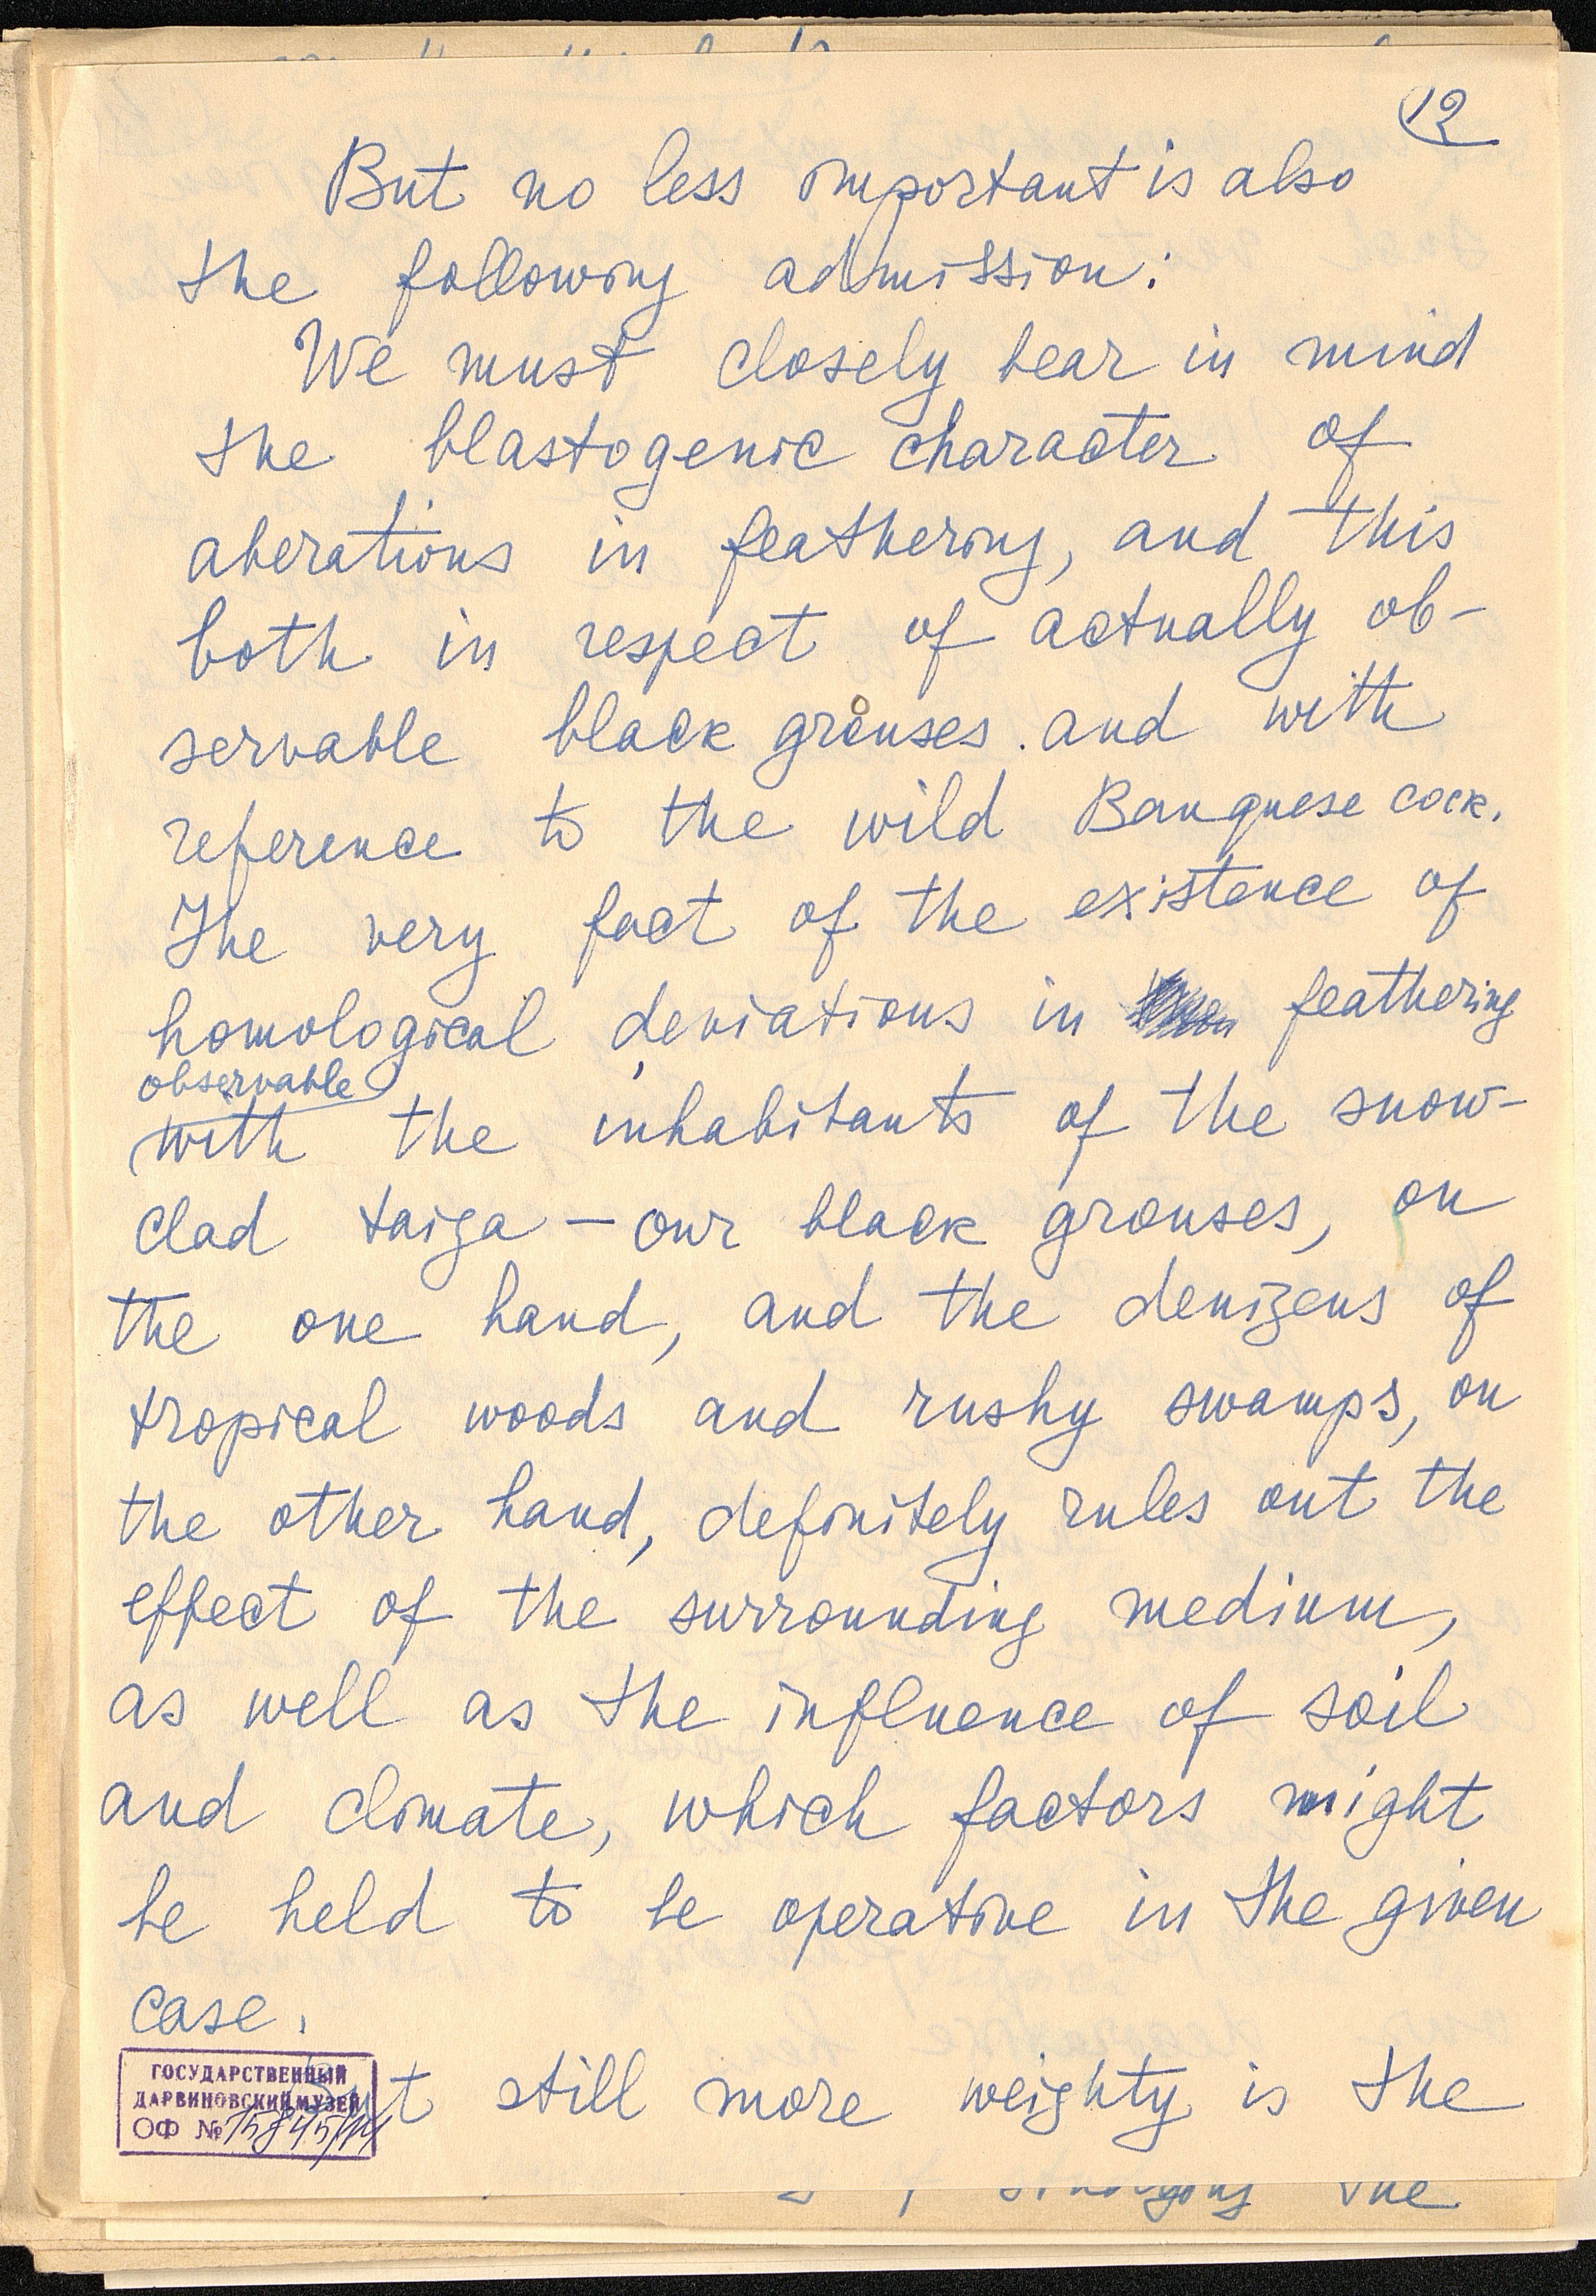 12
But no less important is also
the following admission:
We must closely bear in mind
the blastogenic character of
aberations in feathering, and this
both in respect of actually ob-
servable black grouses and with
reference to the wild Banquese cock.
The very fact of the existence of
homological deviations in feathering
observable
with the inhabitants of the snow-
clad taiga — our black grouses, on
the one hand, and the denizens of
tropical woods and rushy swamps, on
the other hand, definitely rules out the
effect of the surrounding medium,
as well as the influence of soil
and climate, which factors might
be held to be operative in the given
case.
But still more weighty is the
ГОСУДАРСТВЕННЫЙ
ДАРВИНОВСКИЙ МУЗЕЙ
ОФ № 15845/14
the